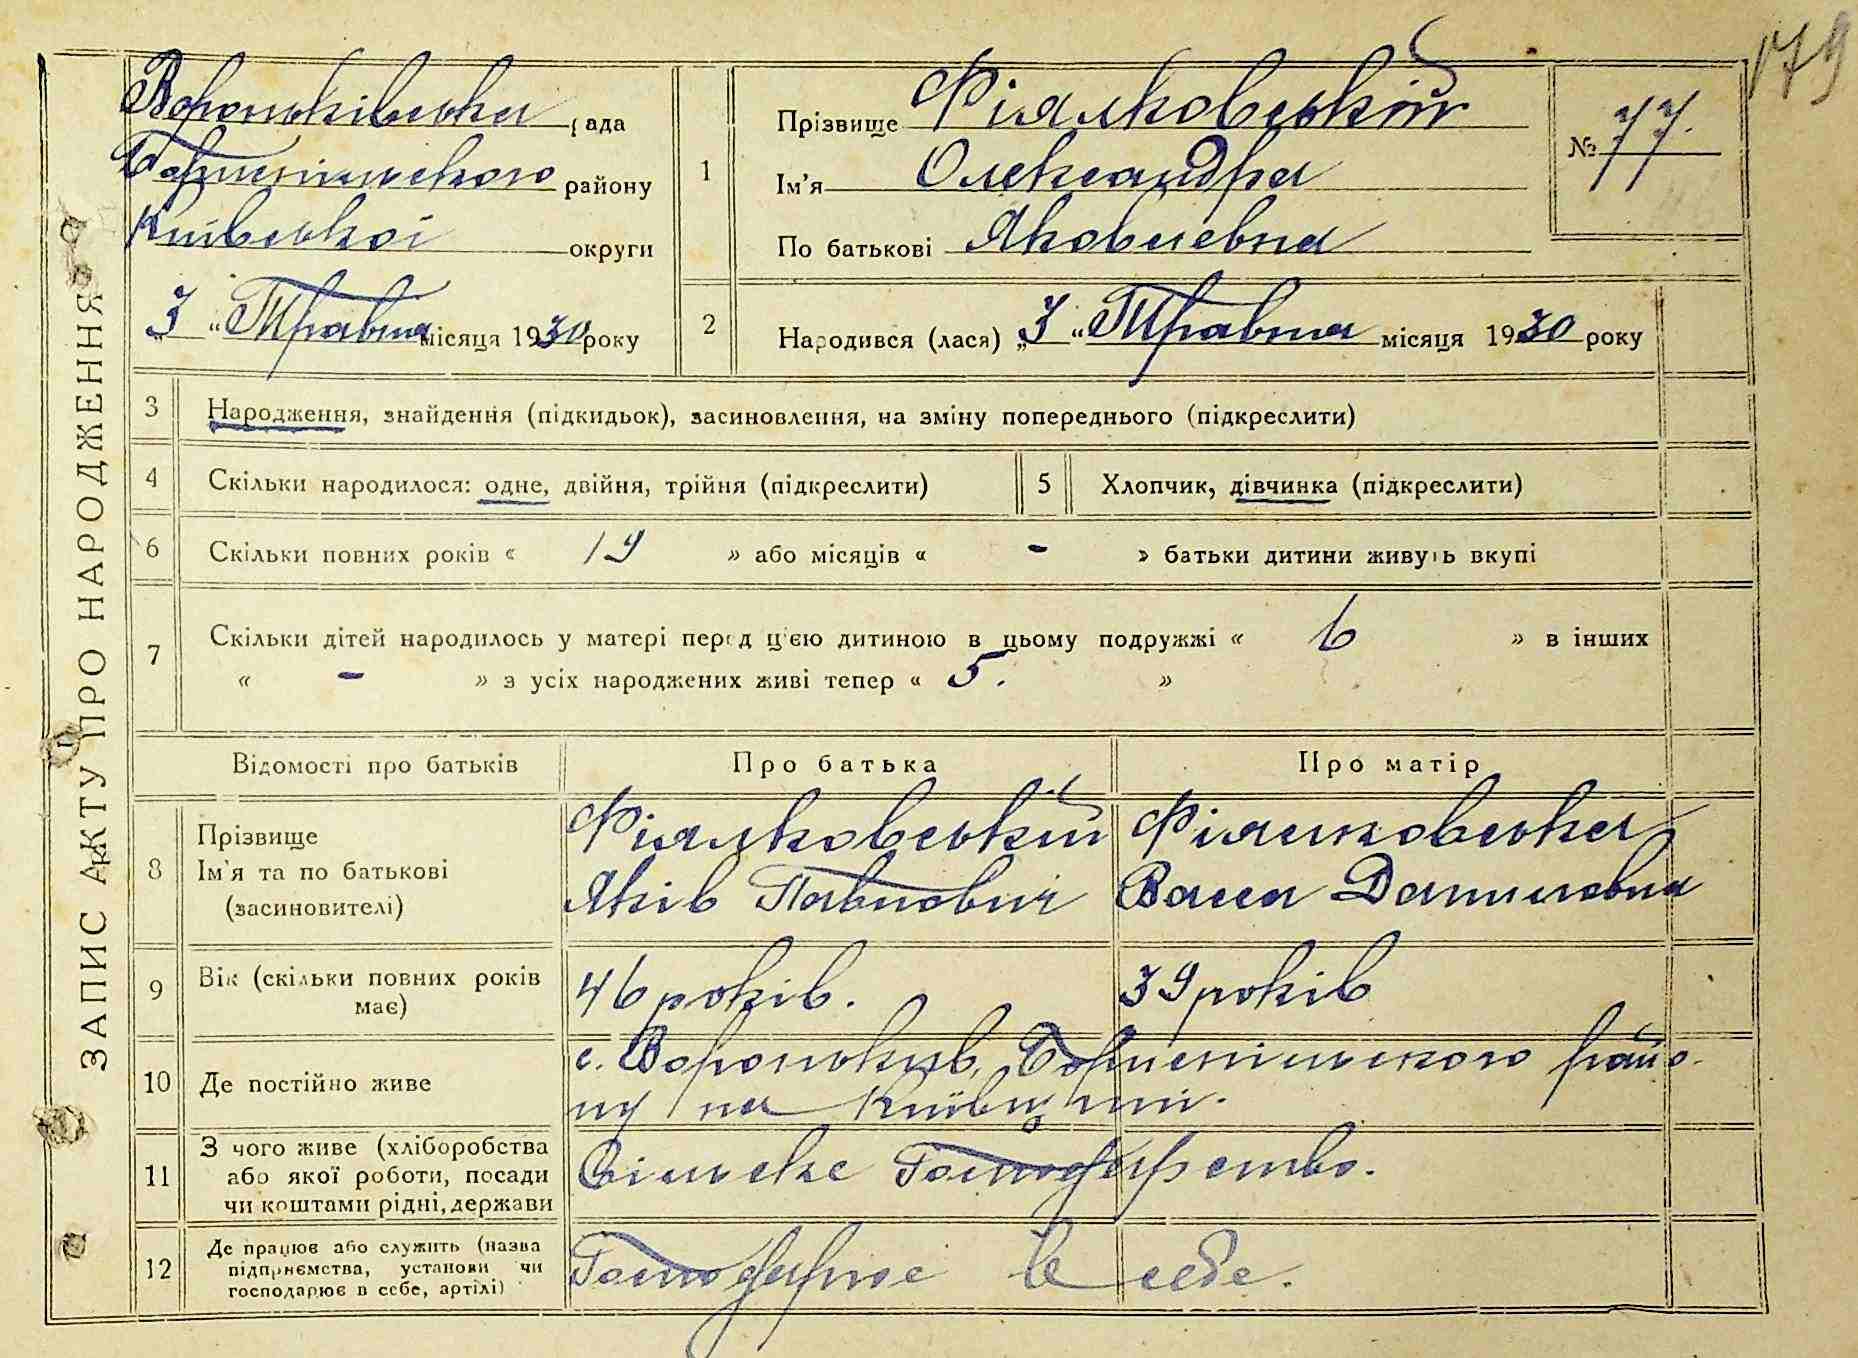 179
ЗАПИС АКТУ ПРО НАРОДЖЕННЯ
Вороньківська рада
Бориспільського району
Київської округи
3 „ Травня місяця 1930 року
1
Прізвище Фіялковській
Ім'я Олександра
По батькові Яковлевна
№ 77.
2
Народився (лася) „3 „ Травня місяця 1930 року
3 Народження, знайдення (підкидьок), засиновлення, на зміну попереднього (підкреслити)
4 Скільки народилося: одне, двійня, трійня (підкреслити) 5 Хлопчик, дівчинка (підкреслити)
6 Скільки повних років « 19 » або місяців « - » батьки дитини живуть вкупі
7 Скільки дітей народилось у матері перед ц'єю дитиною в цьому подружжі « 6 » в інших
« - » з усіх народжених живі тепер « 5. »
Відомості про батьків Про батька Про матір
8 Прізвище
Ім'я та по батькові
(засиновителі)
Фіялковській
Яків Павлович
Фіялковська
Васса Даниловна
9 Вік (скільки повних років
має)
46 років. 39 років
10 Де постійно живе
с. Вороньків, Бориспільського райо-
ну на Київщині.
11 З чого живе (хліборобства
або якої роботи, посади
чи коштами рідні, держави
Сільске Господарство.
12 Де працює або служить (назва
підприємства, установи чи
господарює в себе, артілі)
Господарює в себе.